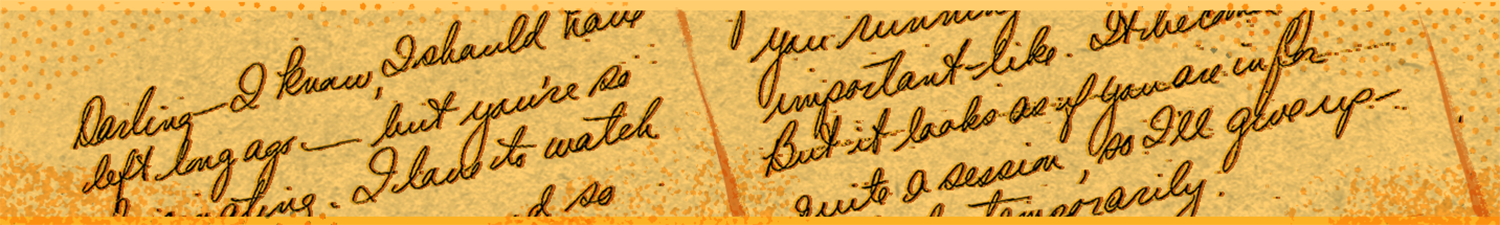 Darling — I know, I should have
left long ago — but you're so
I love to watch
so
you running
important-like. It
But it looks as if you are in for
Quite a session, so I'll give up —
temporarily.